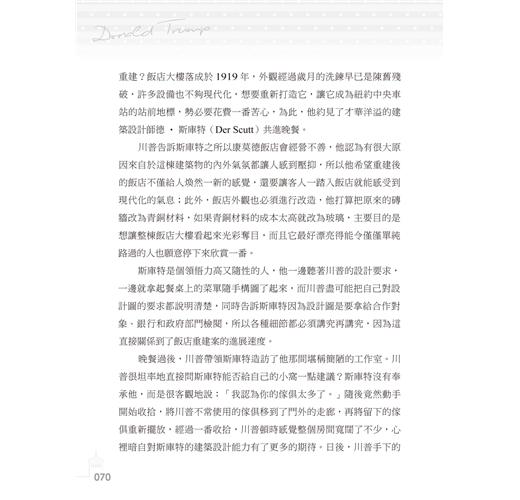 Donald Trump
重建？飯店大樓落成於 1919 年，外觀經過歲月的洗鍊早已是陳舊殘
破，許多設備也不夠現代化，想要重新打造它，讓它成為紐約中央車
站的站前地標，勢必要花費一番苦心，為此，他約見了才華洋溢的建
築設計師德 • 斯庫特（Der Scutt）共進晚餐。
川普告訴斯庫特之所以康莫德飯店會經營不善，他認為有很大原
因來自於這棟建築物的內外氣氛都讓人感到壓抑，所以他希望重建後
的飯店不僅給人煥然一新的感覺，還要讓客人一踏入飯店就能感受到
現代化的氣息；此外，飯店外觀也必須進行改造，他打算把原來的磚
牆改為青銅材料，如果青銅材料的成本太高就改為玻璃，主要目的是
想讓整棟飯店大樓看起來光彩奪目，而且它最好漂亮得能令僅僅單純
路過的人也願意停下來欣賞一番。
斯庫特是個領悟力高又隨性的人，他一邊聽著川普的設計要求，
一邊就拿起餐桌上的菜單隨手構圖了起來，而川普盡可能把自己對設
計圖的要求都說明清楚，同時告訴斯庫特因為設計圖是要拿給合作對
象、銀行和政府部門檢閱，所以各種細節都必須講究再講究，因為這
直接關係到了飯店重建案的進展速度。
晚餐過後，川普帶領斯庫特造訪了他那間堪稱簡陋的工作室。川
普很坦率地直接問斯庫特能否給自己的小窩一點建議？斯庫特沒有奉
承他，而是很客觀地說：「我認為你的傢俱太多了。」隨後竟然動手
開始收拾，將川普不常使用的傢俱移到了門外的走廊，再將留下的傢
俱重新擺放，經過一番收拾，川普頓時感覺整個房間寬闊了不少，心
裡暗自對斯庫特的建築設計能力有了更多的期待。日後，川普手下的
070